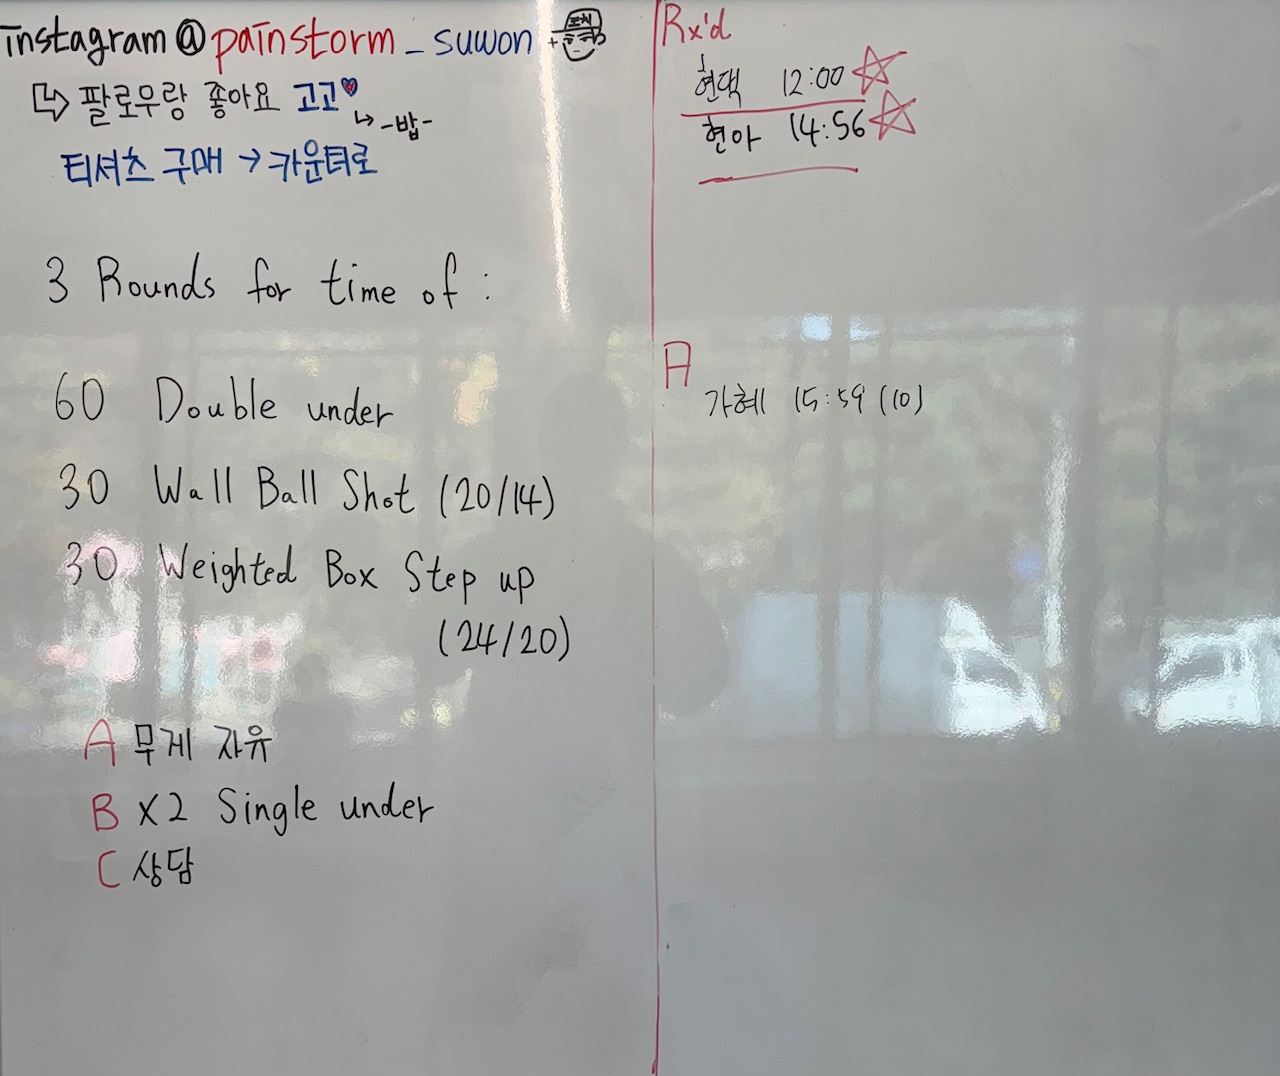 instagram@painstorm_suwon
팔로우랑 좋아요 고고
-밥-
티셔츠 구매 → 카운터로
3 Rounds for time of :
60 Double under
30 Wall Ball Shot (20/14)
30 Weighted Box Step up
(24/20)
A 무게 자유
B X2 Single under
C 상담
Rx'd
현택 12:00
현아 14:56
A
가혜 15:59 (10)